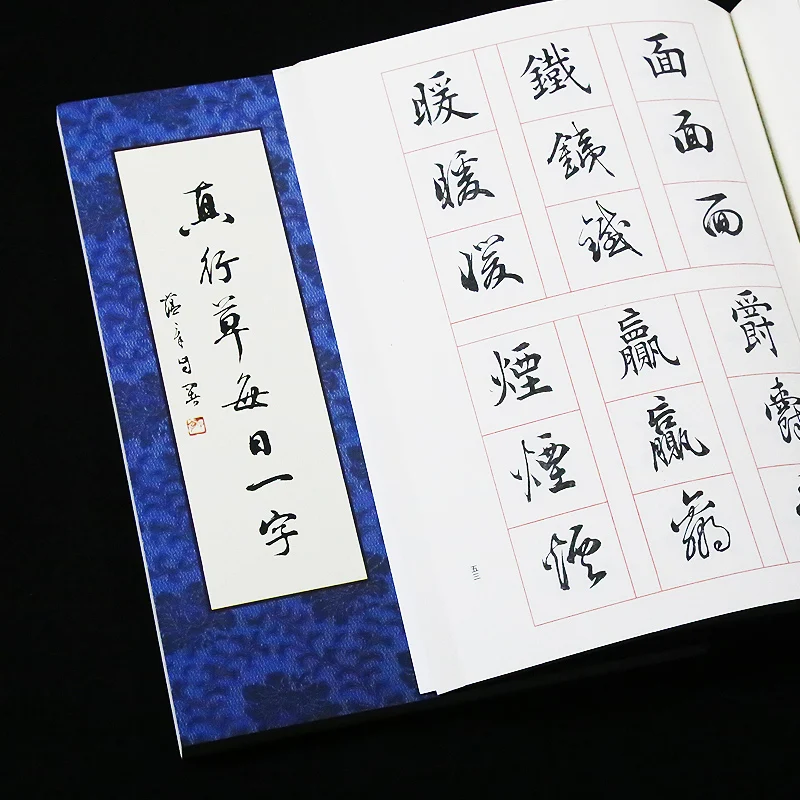 真行草每日一字
面面面
鐵鐵鐵
暖暖暖
爵爵
贏贏贏
煙煙煙
五三